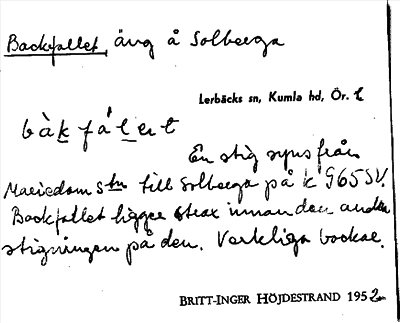 Backfallet, äng å Solberga
Lerbäcks sn, Kumla hd, Ör. l.
bàkfál̲et
En stig syns från
Mariedam Stn till Solberga på k 965 SV.
Backfallet ligger strax innan den andra
stigningen på den. Verkliga backar.
BRITT-INGER HÖJDESTRAND 1952